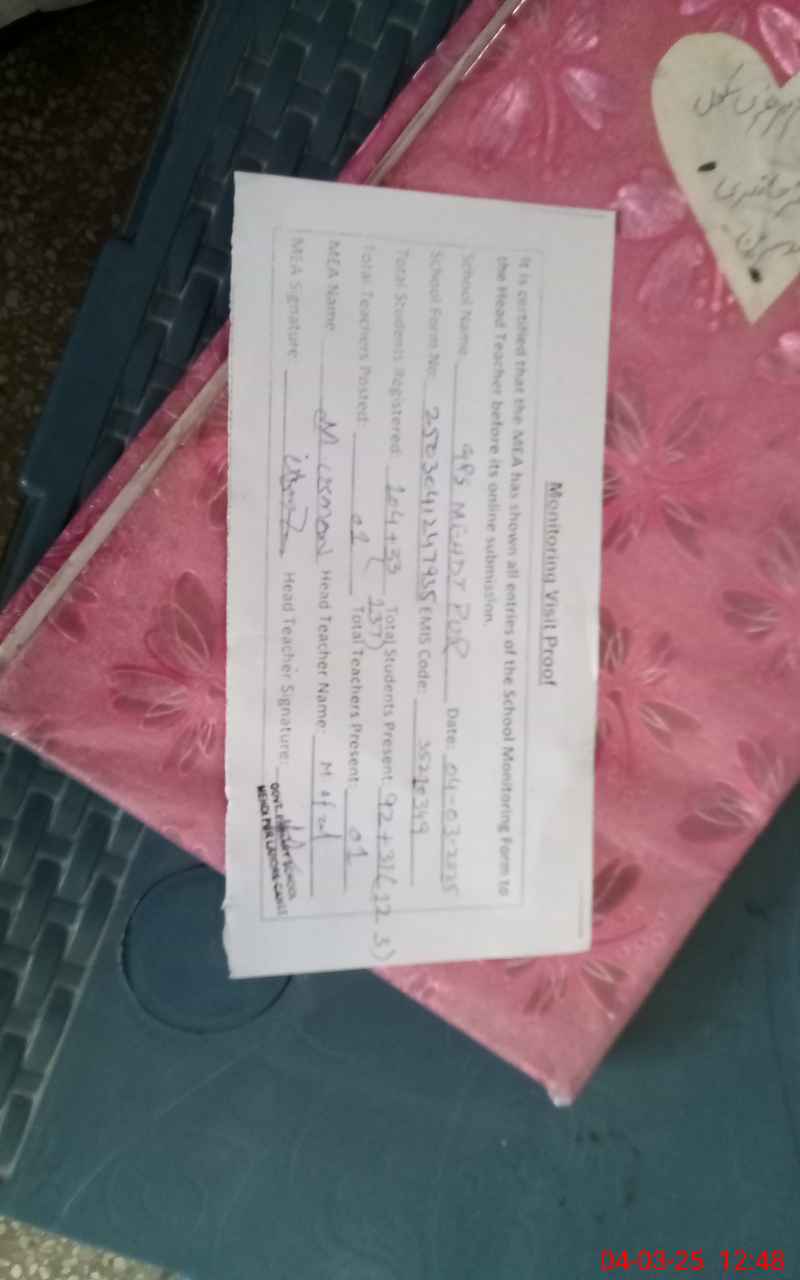 Monitoring Visit Proof
It is certified that the MEA has shown all entries of the School Monitoring Form to
the Head Teacher before its online submission.
School Name GPS MEHDI PUR Date: 04-03-2025
School Form No: 2503041247935 EMIS Code: 35210349
Total Students Registered: 104+33 (137) Total Students Present: 92+31(123)
Total Teachers Posted: 01 Total Teachers Present: 01
MEA Name M usman Head Teacher Name: M Afzal
MEA Signature Head Teacher Signature:
GOVT. SCHOOL
MEHDI PUR LAHORE CANTT
04-03-25 12:48